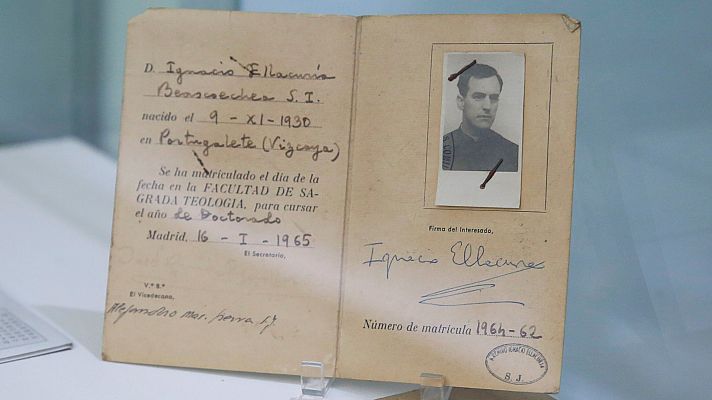 D. Ignacio Ellacuría
Beascoechea S. I.
nacido el 9 - XI - 1930
en Portugalete (Vizcaya)
Se ha matriculado el día de la
fecha en la FACULTAD DE SA-
GRADA TEOLOGIA, para cursar
el año de Doctorado
Madrid, 16 - I - 1965
El Secretario,
V.º B.º
El Vicedecano,
Alejandro
Firma del Interesado,
Ignacio Ellacuría
Número de matrícula 1964-62
IGNACIO ELLACURIA
S. J.